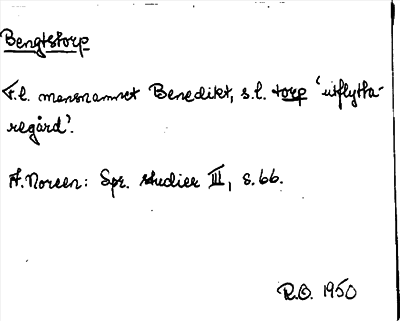 Bengtstorp
F.l. mansnamnet Benedikt, s.l. torp 'utflytta-
regård'.
A. Noreen: Spr. studier III, s. 66.
R.O. 1950